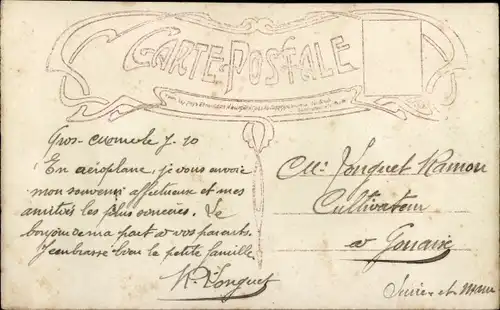 CARTE POSTALE
7-10
En aéroplane, je vous envoie
mon souvenir affectueux et mes
amitiés les plus sincères. Le
bonjour de ma part à vos parents.
J'embrasse bien la petite famille
Longuet
Mr Longuet Ramon
Cultivateur
à
Seine-et-Marne